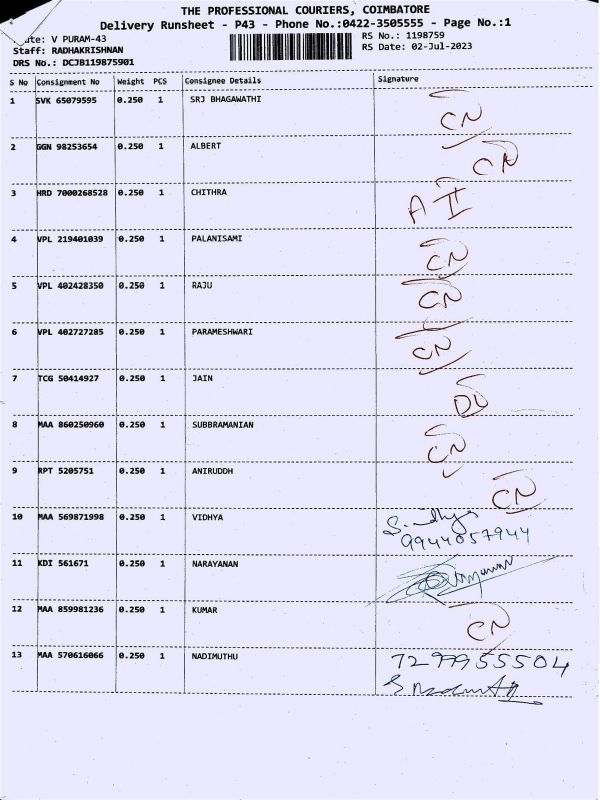 THE PROFESSIONAL COURIERS, COIMBATORE
Delivery Runsheet - P43 - Phone No.:0422-3505555 - Page No.:1
ute: V PURAM-43 RS No.: 1198759
Staff: RADHAKRISHNAN RS Date: 02-Jul-2023
DRS No.: DCJB119875901
S No Consignment No Weight PCS Consignee Details Signature
1 SVK 65079595 0.250 1 SRJ BHAGAWATHI CN
2 GGN 98253654 0.250 1 ALBERT CN
3 HRD 7000268528 0.250 1 CHITHRA A II
4 VPL 219401039 0.250 1 PALANISAMI CN
5 VPL 402428350 0.250 1 RAJU CN
6 VPL 402727285 0.250 1 PARAMESHWARI CN
7 TCG 50414927 0.250 1 JAIN DL
8 MAA 860250960 0.250 1 SUBBRAMANIAN CN
9 RPT 5205751 0.250 1 ANIRUDDH CN
10 MAA 569871998 0.250 1 VIDHYA
9944057944
11 KDI 561671 0.250 1 NARAYANAN
12 MAA 859981236 0.250 1 KUMAR CN
13 MAA 570616066 0.250 1 NADIMUTHU